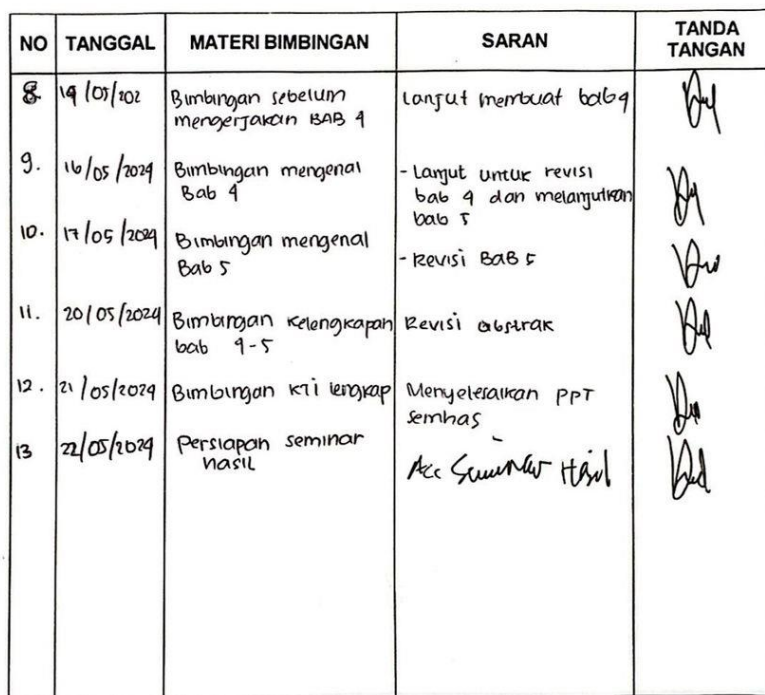 NO TANGGAL MATERI BIMBINGAN SARAN TANDA TANGAN
8. 14/05/202 Bimbingan sebelum mengerjakan BAB 4 Lanjut membuat bab 4
9. 16/05/2024 Bimbingan mengenai Bab 4 - Lanjut untuk revisi bab 4 dan melanjutkan bab 5
10. 17/05/2024 Bimbingan mengenai Bab 5 - Revisi BAB 5
11. 20/05/2024 Bimbingan kelengkapan bab 4-5 Revisi abstrak
12. 21/05/2024 Bimbingan KTI lengkap Menyelesaikan PPT semhas
13 22/05/2024 Persiapan seminar hasil Acc Seminar Hasil